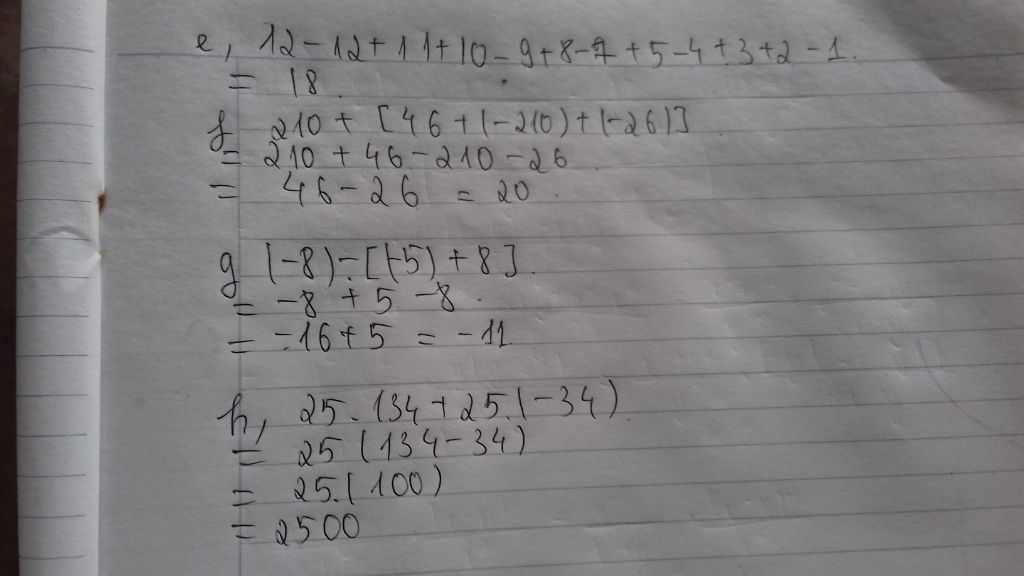 e, 12-12+11+10-9+8-7+5-4+3+2-1.
= 18.
f 210+[46+(-210)+(-26)]
= 210+46-210-26
= 46-26 = 20.
g (-8)-[(-5)+8].
= -8+5-8.
= -16+5 = -11.
h, 25.134+25.(-34)
= 25(134-34)
= 25.(100)
= 2500